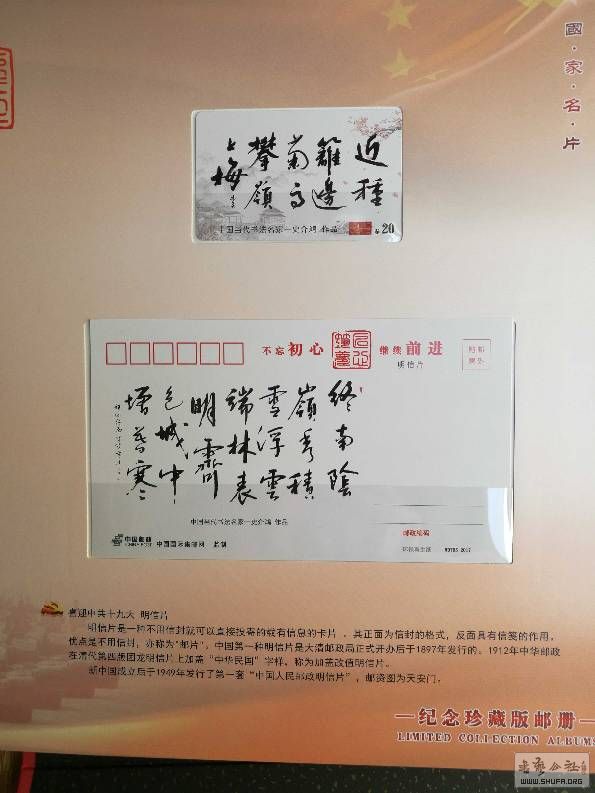 國·家·名·片
近種
籬邊
菊又
攀嶺
上梅
中国当代书法名家—史介鸿 作品
¥20
不忘初心
继续前进
明信片
终南陰
嶺秀積
雪浮雲
端林表
明霽
色城中
增暮寒
中国当代书法名家—史介鸿 作品
邮政编码
中国邮政
CHINA POST
中国国际集邮网 监制
2017
喜迎中共十九大 明信片
明信片是一种不用信封就可以直接投寄的载有信息的卡片，其正面为信封的格式，反面具有信笺的作用。
优点是不用信封，亦称为"邮片"。中国第一种明信片是大清邮政局正式开办后于1897年发行的。1912年中华邮政
在清代第四版团龙明信片上加盖"中华民国"字样，称为加盖改值明信片。
新中国成立后于1949年发行了第一套"中国人民邮政明信片"，邮资图为天安门。
纪念珍藏版邮册
LIMITED COLLECTION ALBUMS
WWW.SHUFA.ORG